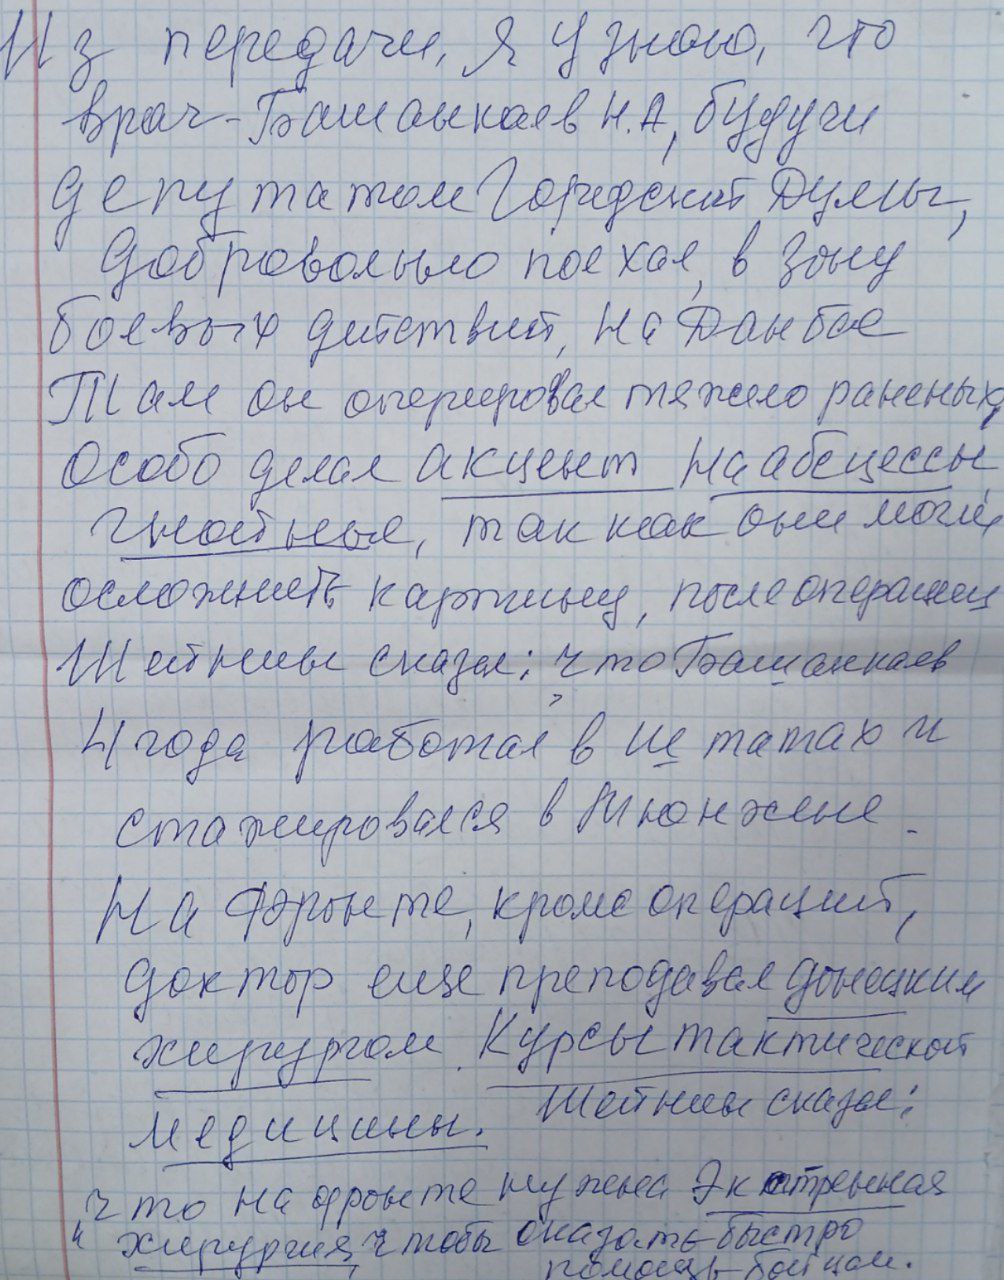 Из передачи, я узнаю, что
врач-Башанкаев Н.А, будучи
депутатом Городской Думы,
добровольно поехал, в зону
боевых действий, на Данбас
Там он оперировал тяжело раненых,
Особо делал акцент на абсцессы
гнойные, так как они могли
осложнить картину, после операции
Шейнин сказал: что Башанкаев
4 года работал в Штатах и
стажировался в Мюнхене.
На фронте, кроме операций,
доктор еще преподавал донецким
хирургам. Курсы тактической
медицины. Шейнин сказал:
"что на фронте нужна Экстренная
хирургия, чтобы оказать быстро
помощь бойцам.